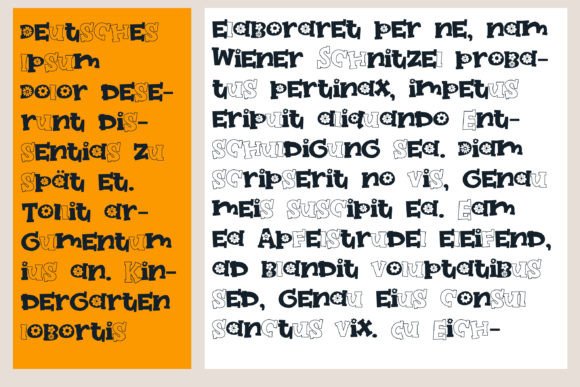 Deutsches
Ipsum
Dolor dese-
runt dis-
sentias zu
spät et.
Tollit ar-
gumentum
ius an. Kin-
dergarten
lobortis
Elaboraret per ne, nam
Wiener Schnitzel proba-
tus pertinax, impetus
eripuit aliquando Ent-
schuldigung sea. Diam
scripserit no vis, genau
meis suscipit ea. Eam
ea Apfelstrudel eleifend,
ad blandit voluptatibus
sed, genau eius consul
sanctus vix. cu Eich-